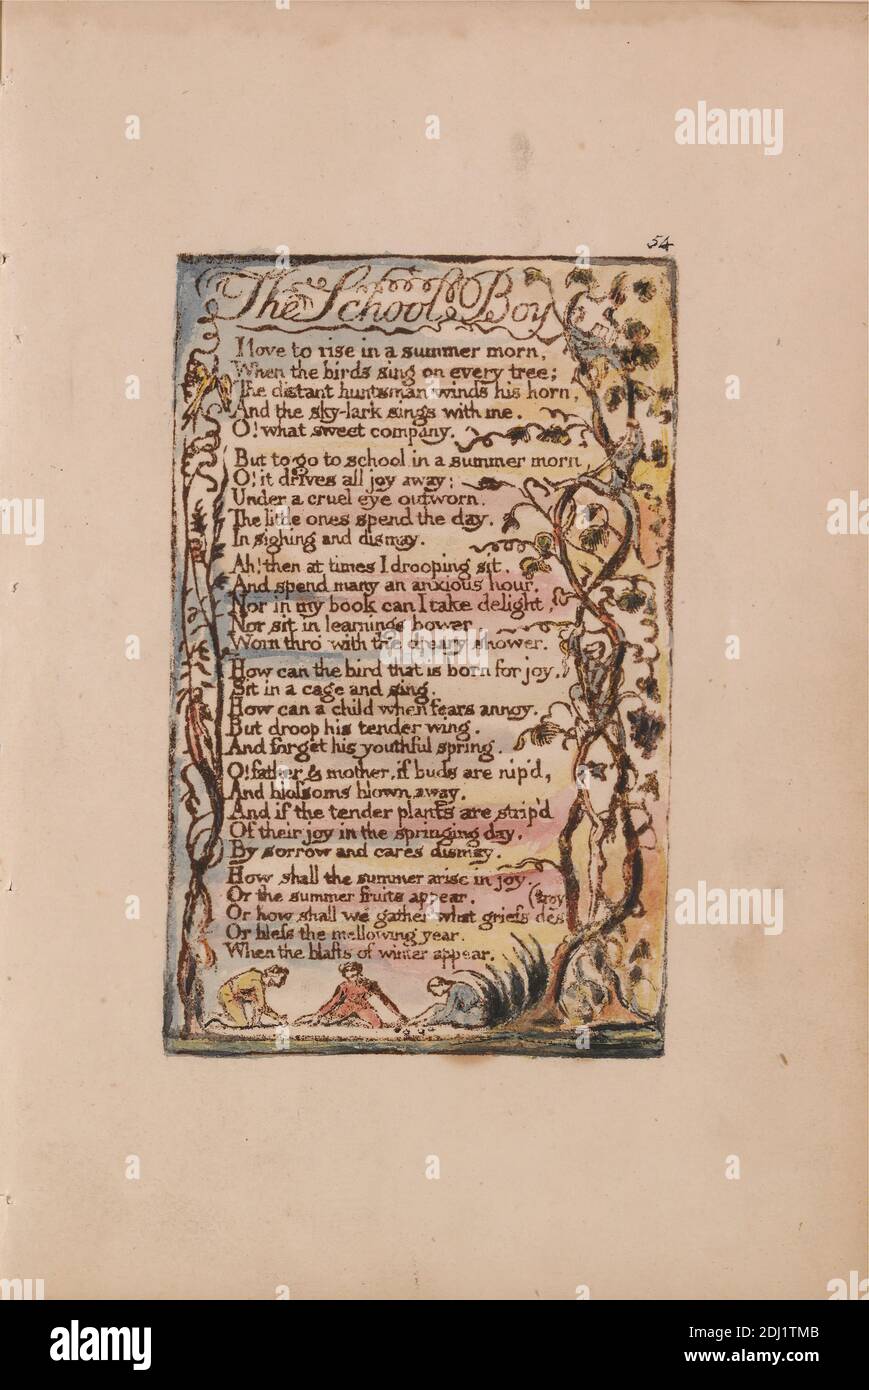 54
The School Boy
I love to rise in a summer morn,
When the birds sing on every tree;
The distant huntsman winds his horn,
And the sky-lark sings with me.
O! what sweet company.
But to go to school in a summer morn,
O! it drives all joy away;
Under a cruel eye outworn.
The little ones spend the day.
In sighing and dismay.
Ah! then at times I drooping sit,
And spend many an anxious hour.
Nor in my book can I take delight,
Nor sit in learnings bower,
Worn thro' with the dreary shower.
How can the bird that is born for joy,
Sit in a cage and sing.
How can a child when fears annoy.
But droop his tender wing.
And forget his youthful spring.
O! father & mother, if buds are nip'd,
And blossoms blown away.
And if the tender plants are strip'd
Of their joy in the springing day,
By sorrow and cares dismay.
How shall the summer arise in joy.
Or the summer fruits appear.
Or how shall we gather what griefs des
(troy
Or bless the mellowing year.
When the blasts of winter appear.
alamy
alamy
alamy
Image ID: 2DJ1TMB
www.alamy.com